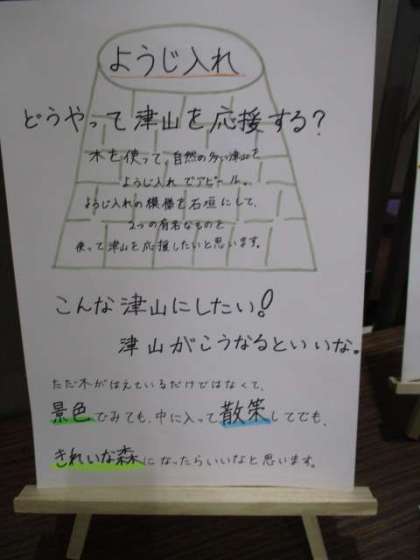 ようじ入れ
どうやって津山を応援する?
木を使って、自然の多い津山を
ようじ入れでアピール。
ようじ入れの模様を石垣にして、
2つの有名なものを
使って津山を応援したいと思います。
こんな津山にしたい!
津山がこうなるといいな。
ただ木がはえているだけではなくて、
景色でみても、中に入って散策してても、
きれいな森になったらいいなと思います。